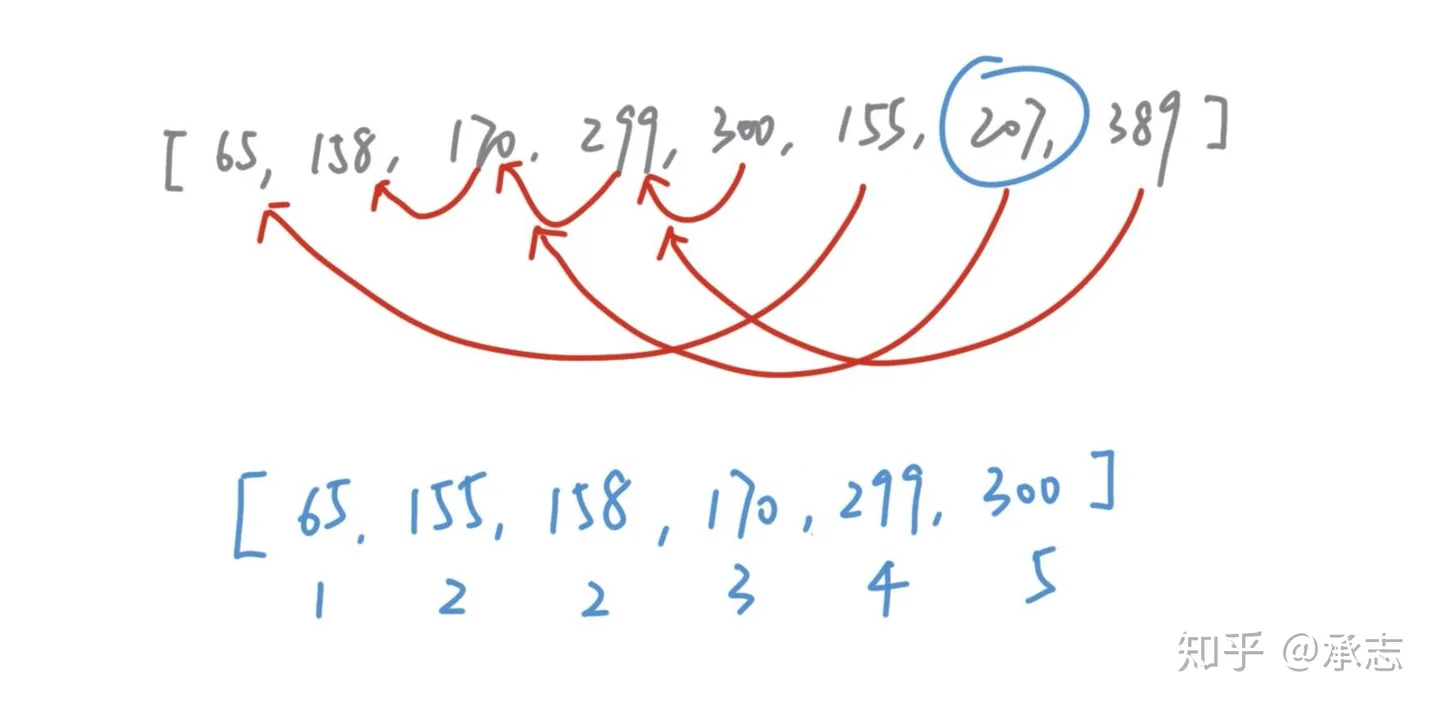 [ 65, 158, 170, 299, 300, 155, 207, 389 ]
[ 65, 155, 158, 170, 299, 300 ]
1 2 2 3 4 5
知乎 @承志